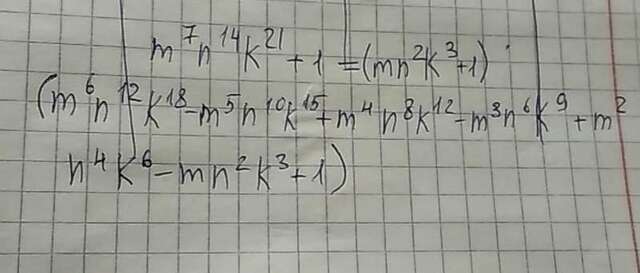 m⁷n¹⁴k²¹+1=(mn²k³+1)
(m⁶n¹²k¹⁸-m⁵n¹⁰k¹⁵+m⁴n⁸k¹²-m³n⁶k⁹+m²
n⁴k⁶-mn²k³+1)